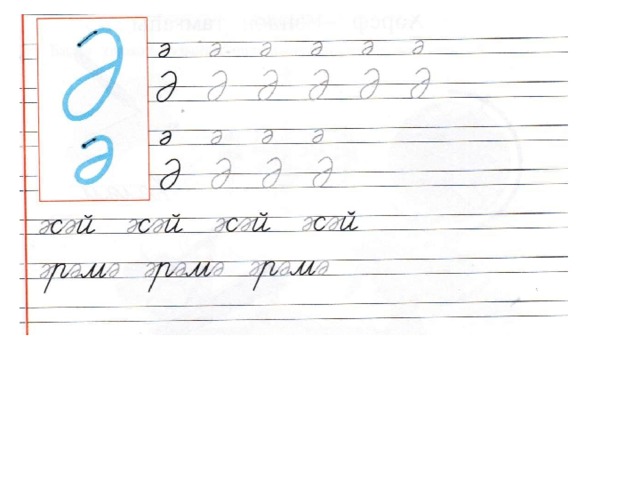 Ә
ә
ә ә ә ә ә ә
Ә Ә Ә Ә Ә Ә
ә ә ә ә
Ә Ә Ә Ә
әсәй әсәй әсәй әсәй
әрәмә әрәмә әрәмә